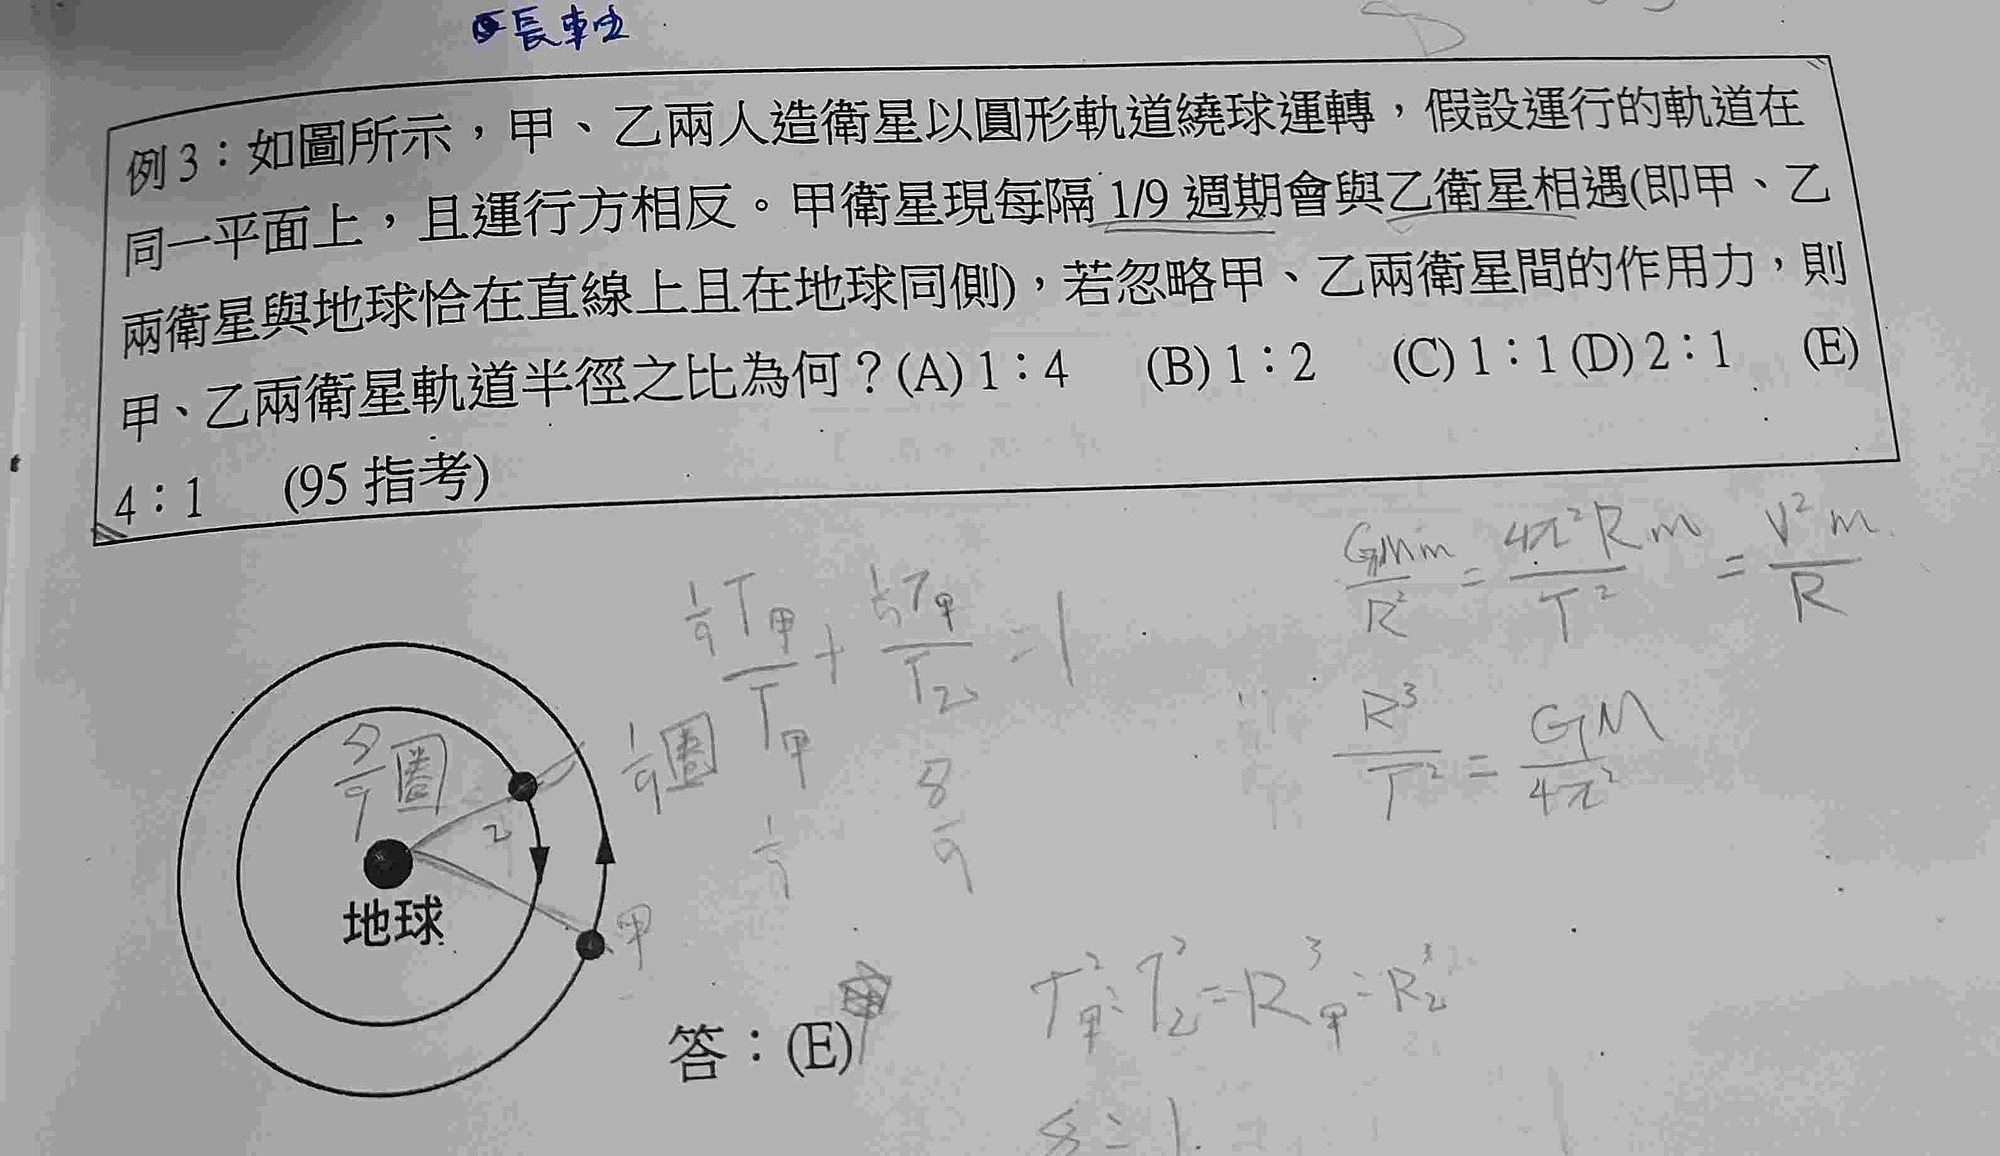 長軸
例3：如圖所示，甲、乙兩人造衛星以圓形軌道繞球運轉，假設運行的軌道在
同一平面上，且運行方相反。甲衛星現每隔 1/9 週期會與乙衛星相遇(即甲、乙
兩衛星與地球恰在直線上且在地球同側)，若忽略甲、乙兩衛星間的作用力，則
甲、乙兩衛星軌道半徑之比為何？(A) 1：4 (B) 1：2 (C) 1：1 (D) 2：1 (E)
4：1 (95 指考)
GMm/R² = 4π²Rm/T² = V²m/R
1/9 T甲/T甲 + 1/9 T甲/T乙 = 1
R³/T² = GM/4π²
8/9圈
1/9圈
1/9
8/9
乙
地球
甲
T甲²：T乙² = R甲³：R乙³
答：(E)
8：1